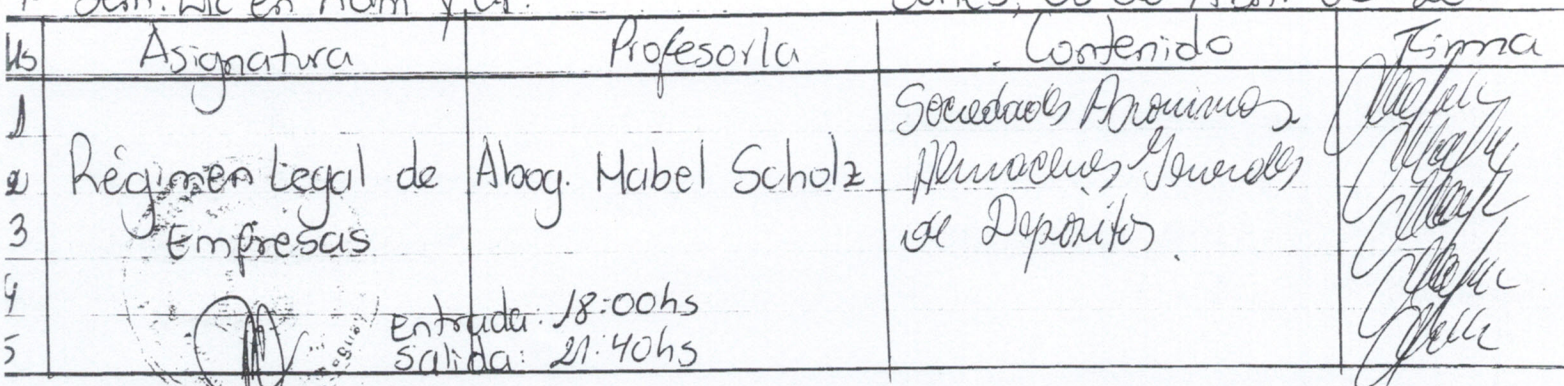 Hs Asignatura Profesor/a Contenido Firma
1 Sociedades Anonimas
2 Régimen Legal de Abog. Mabel Scholz Almacenes Generales
3 Empresas de Depósitos.
4 Entrada: 18:00hs
5 Salida: 21:40hs